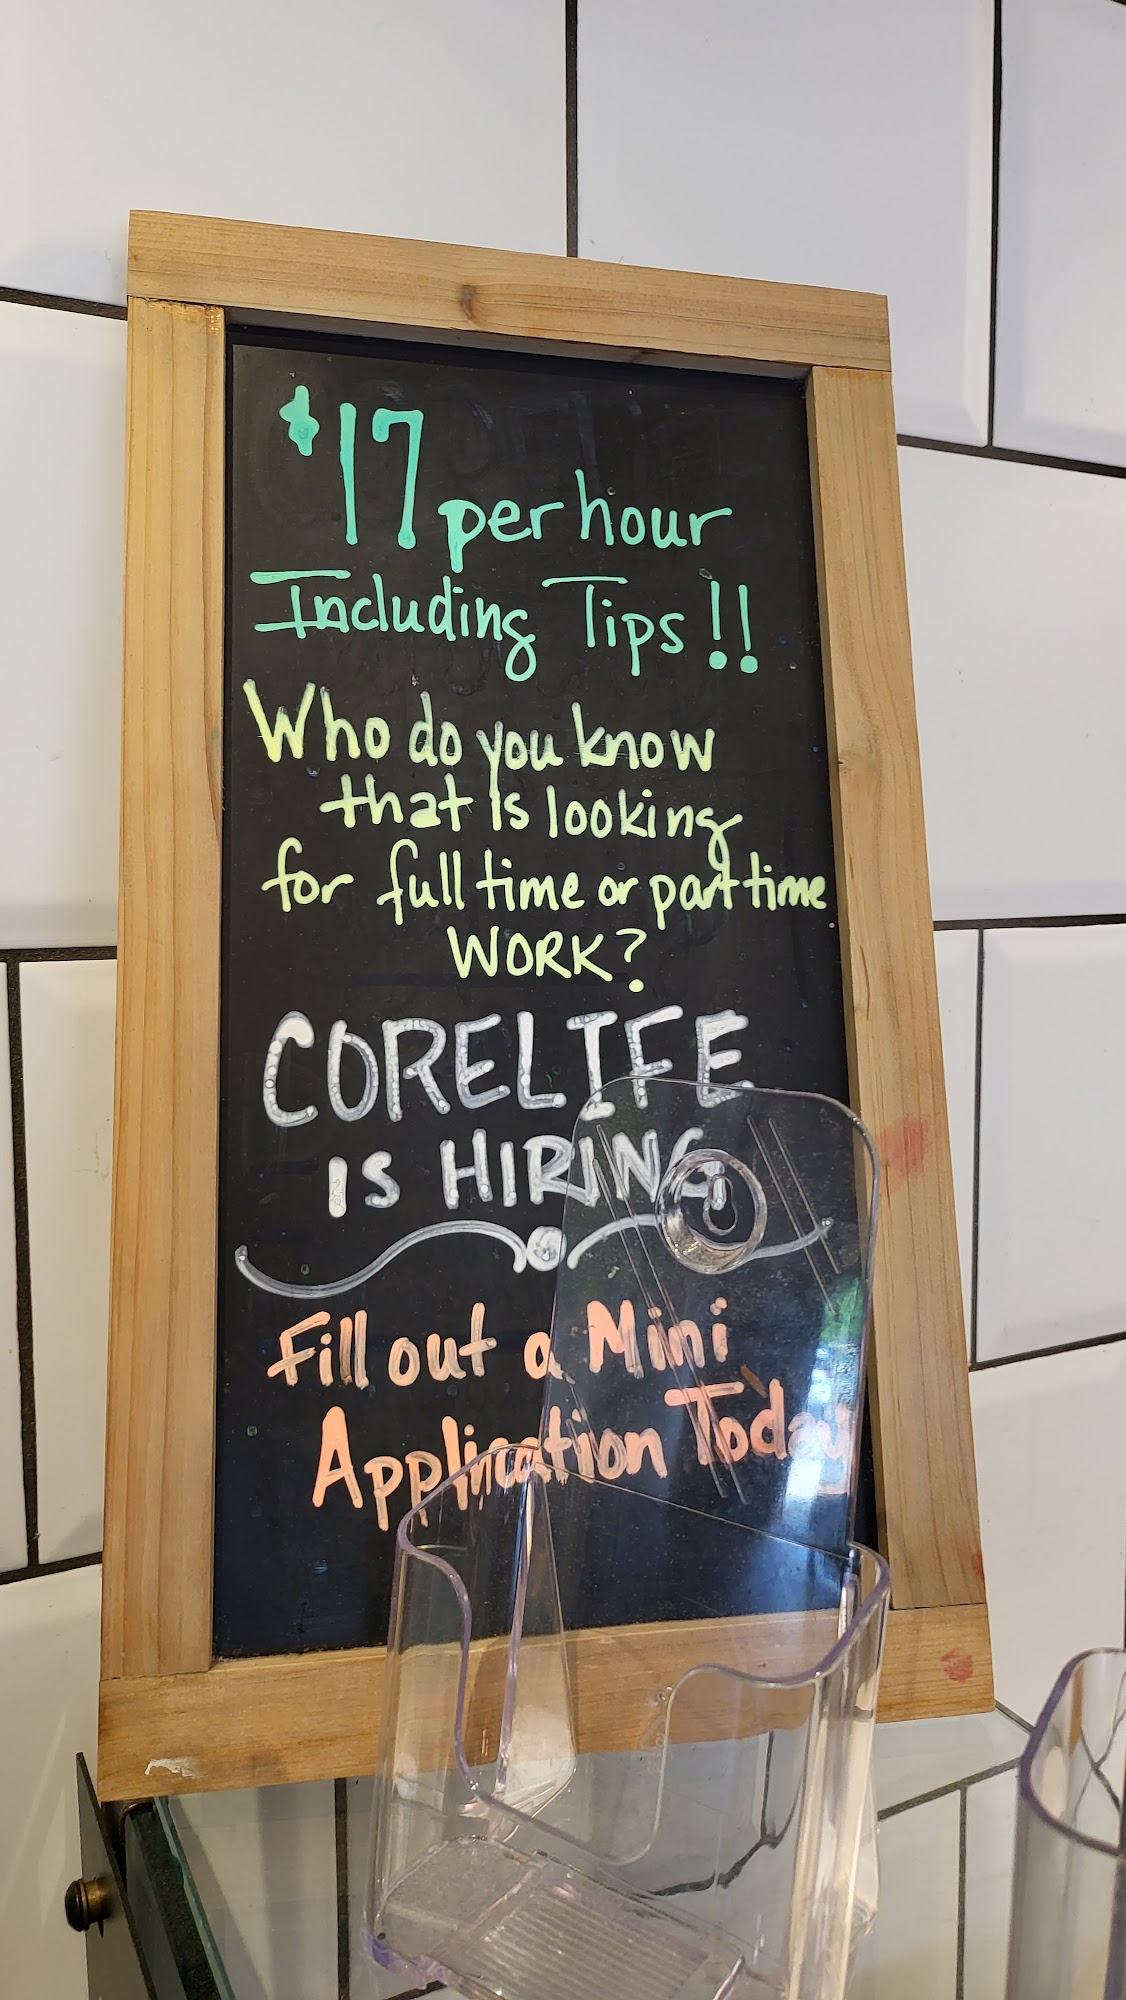 $17 per hour
Including Tips!!
Who do you know
that is looking
for full time or part time
WORK?
CORELIFE
IS HIRING
Fill out a Mini
Application Today